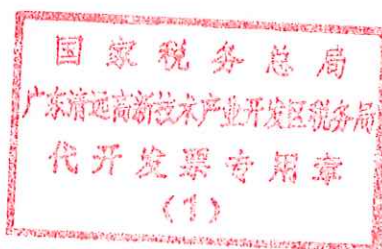 国家税务总局
广东清远高新技术产业开发区税务局
代开发票专用章
(1)